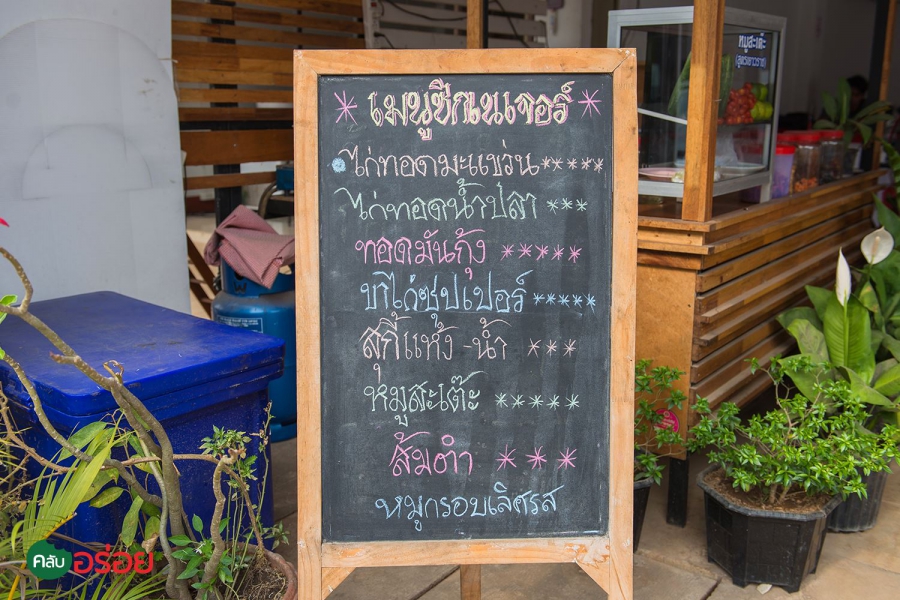 หมูสะเต๊ะ
(สูตรเยาวราช)
* เมนูซิกเนเจอร์ *
ไก่ทอดมะแขว่น ****
ไก่ทอดน้ำปลา ***
ทอดมันกุ้ง *****
ขาไก่ซุปเปอร์ *****
สุกี้แห้ง - น้ำ ***
หมูสะเต๊ะ *****
ส้มตำ ***
หมูกรอบเลิศรส
คลับ อร่อย